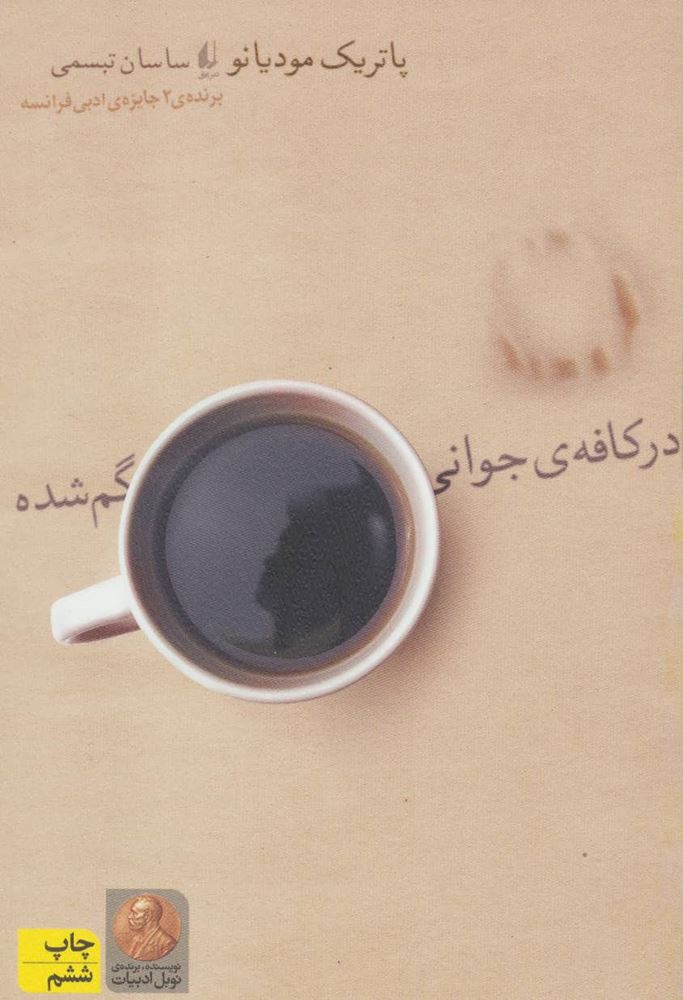 پاتریک مودیانو افق ساسان تبسمی
برنده‌ی ۲ جایزه‌ی ادبی فرانسه
در کافه‌ی جوانی گم‌شده
نویسنده، برنده‌ی
نوبل ادبیات
چاپ
ششم